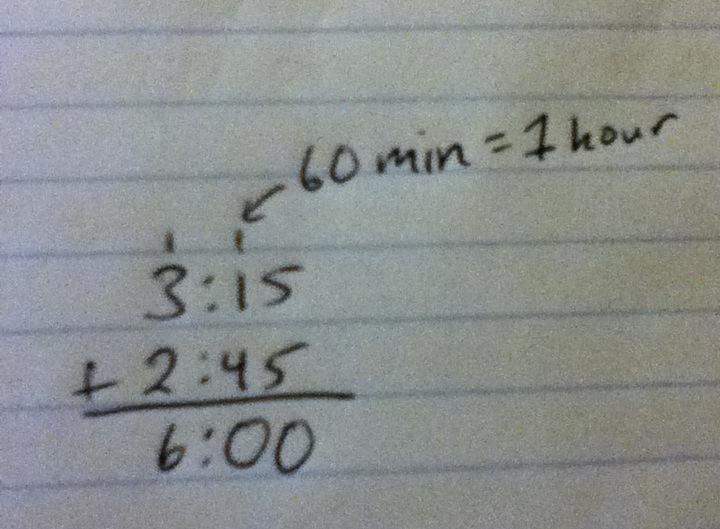 60 min = 1 hour
1 1
3:15
+ 2:45
6:00